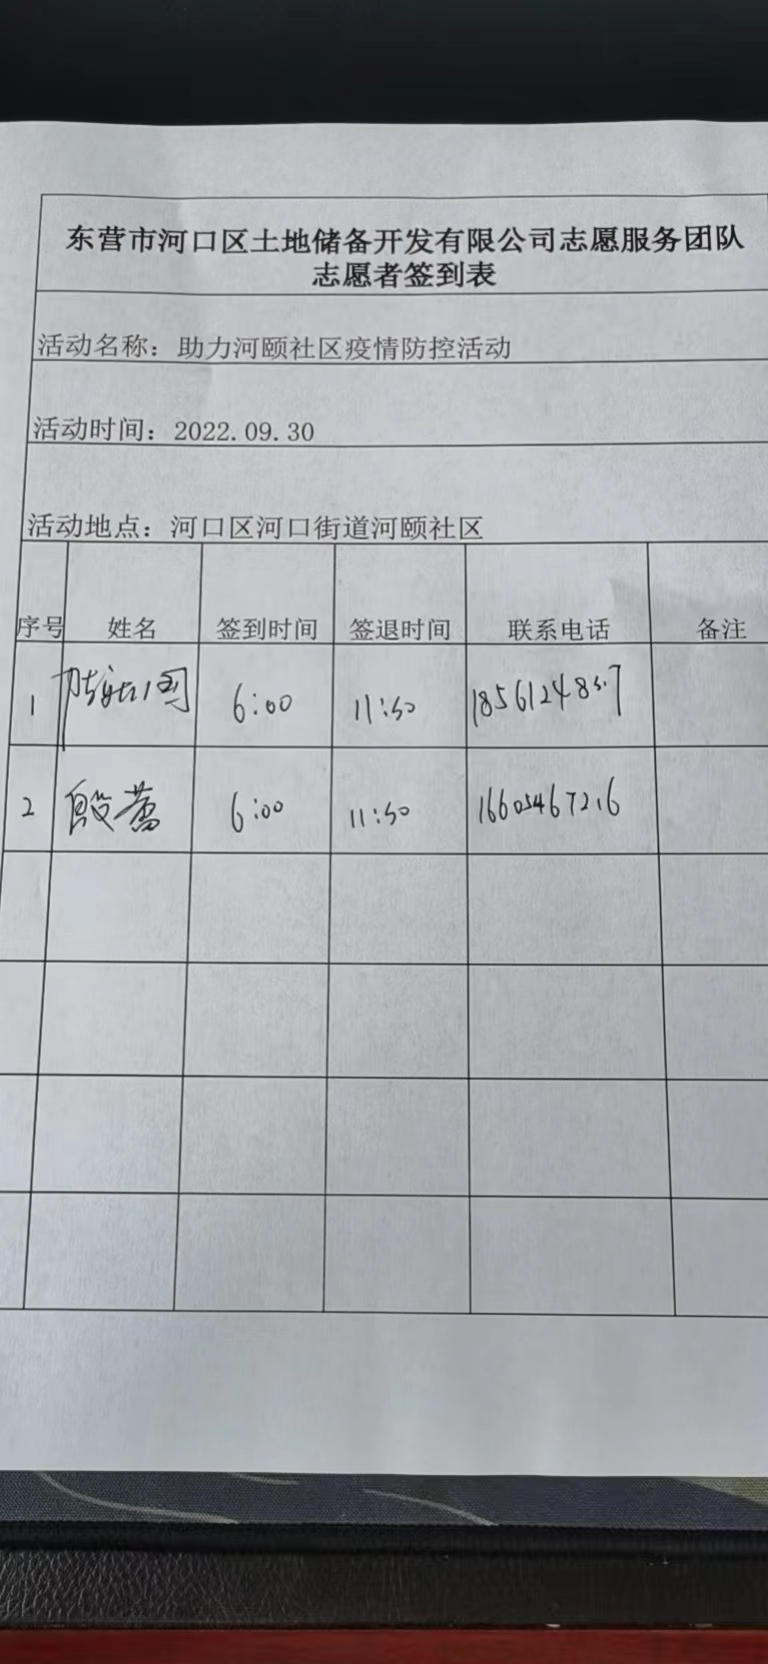 东营市河口区土地储备开发有限公司志愿服务团队
志愿者签到表
活动名称：助力河颐社区疫情防控活动
活动时间：2022.09.30
活动地点：河口区河口街道河颐社区
序号 姓名 签到时间 签退时间 联系电话 备注
1 6:00 11:50
2 殷蕾 6:00 11:50